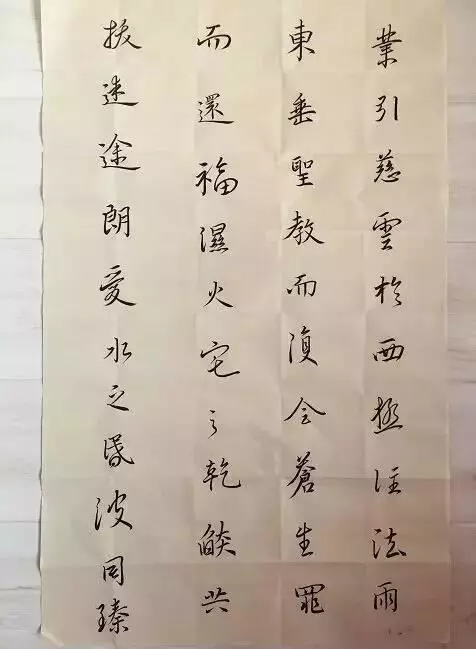 業引慈雲於西極注法雨
東垂聖教而復全蒼生罪
而還福濕火宅之乾燄共
拔迷途朗愛水之昬波同臻